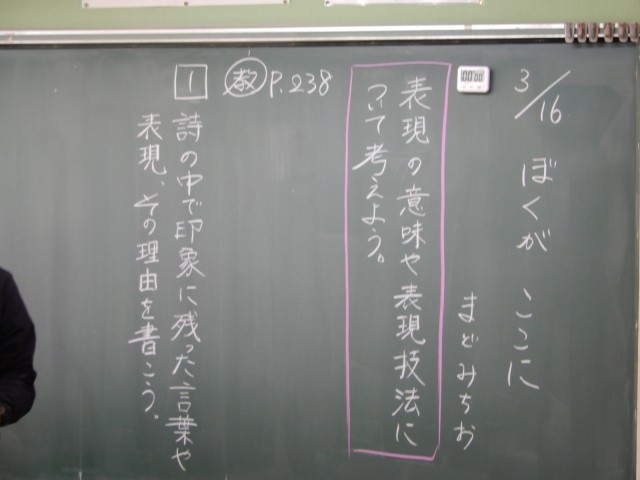 3/16 ぼくが ここに
まどみちお
00:00
表現の意味や表現技法に
ついて考えよう。
教 P.238
1 詩の中で印象に残った言葉や
表現、その理由を書こう。